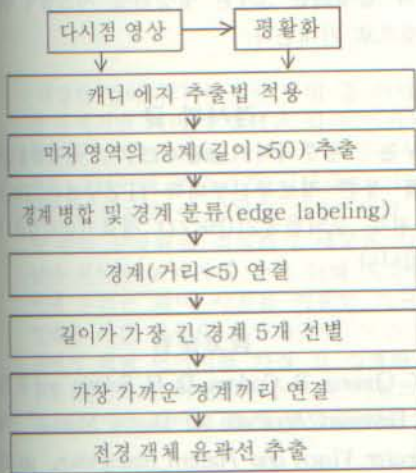 다시점 영상 평활화
캐니 에지 추출법 적용
미지 영역의 경계(길이>50) 추출
경계 병합 및 경계 분류(edge labeling)
경계(거리<5) 연결
길이가 가장 긴 경계 5개 선별
가장 가까운 경계끼리 연결
전경 객체 윤곽선 추출